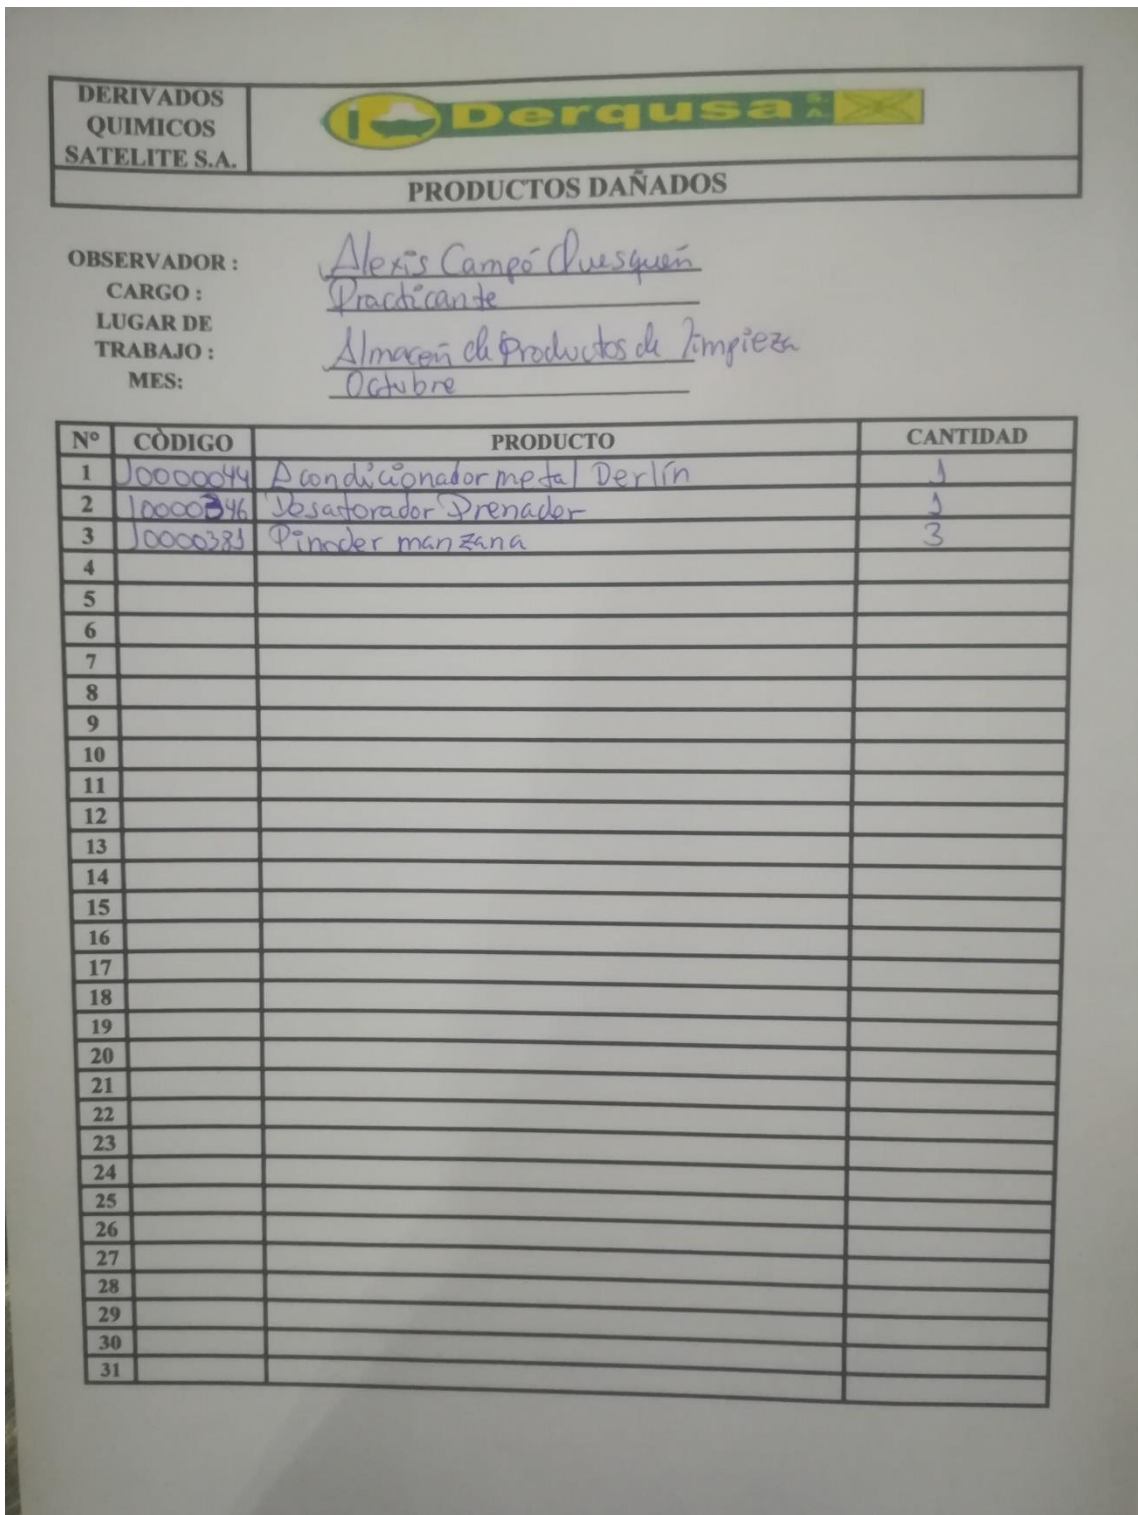 DERIVADOS
QUIMICOS
SATELITE S.A.
Derqusa S.A.
PRODUCTOS DAÑADOS
OBSERVADOR : Alexis Campó Chuesquén
CARGO : Practicante
LUGAR DE
TRABAJO : Almacén de Productos de limpieza
MES: Octubre
Nº CÒDIGO PRODUCTO CANTIDAD
1 10000044 Acondicionador metal Derlín 1
2 10000346 Desatorador Drenader 1
3 10000381 Pinoder manzana 3
4
5
6
7
8
9
10
11
12
13
14
15
16
17
18
19
20
21
22
23
24
25
26
27
28
29
30
31